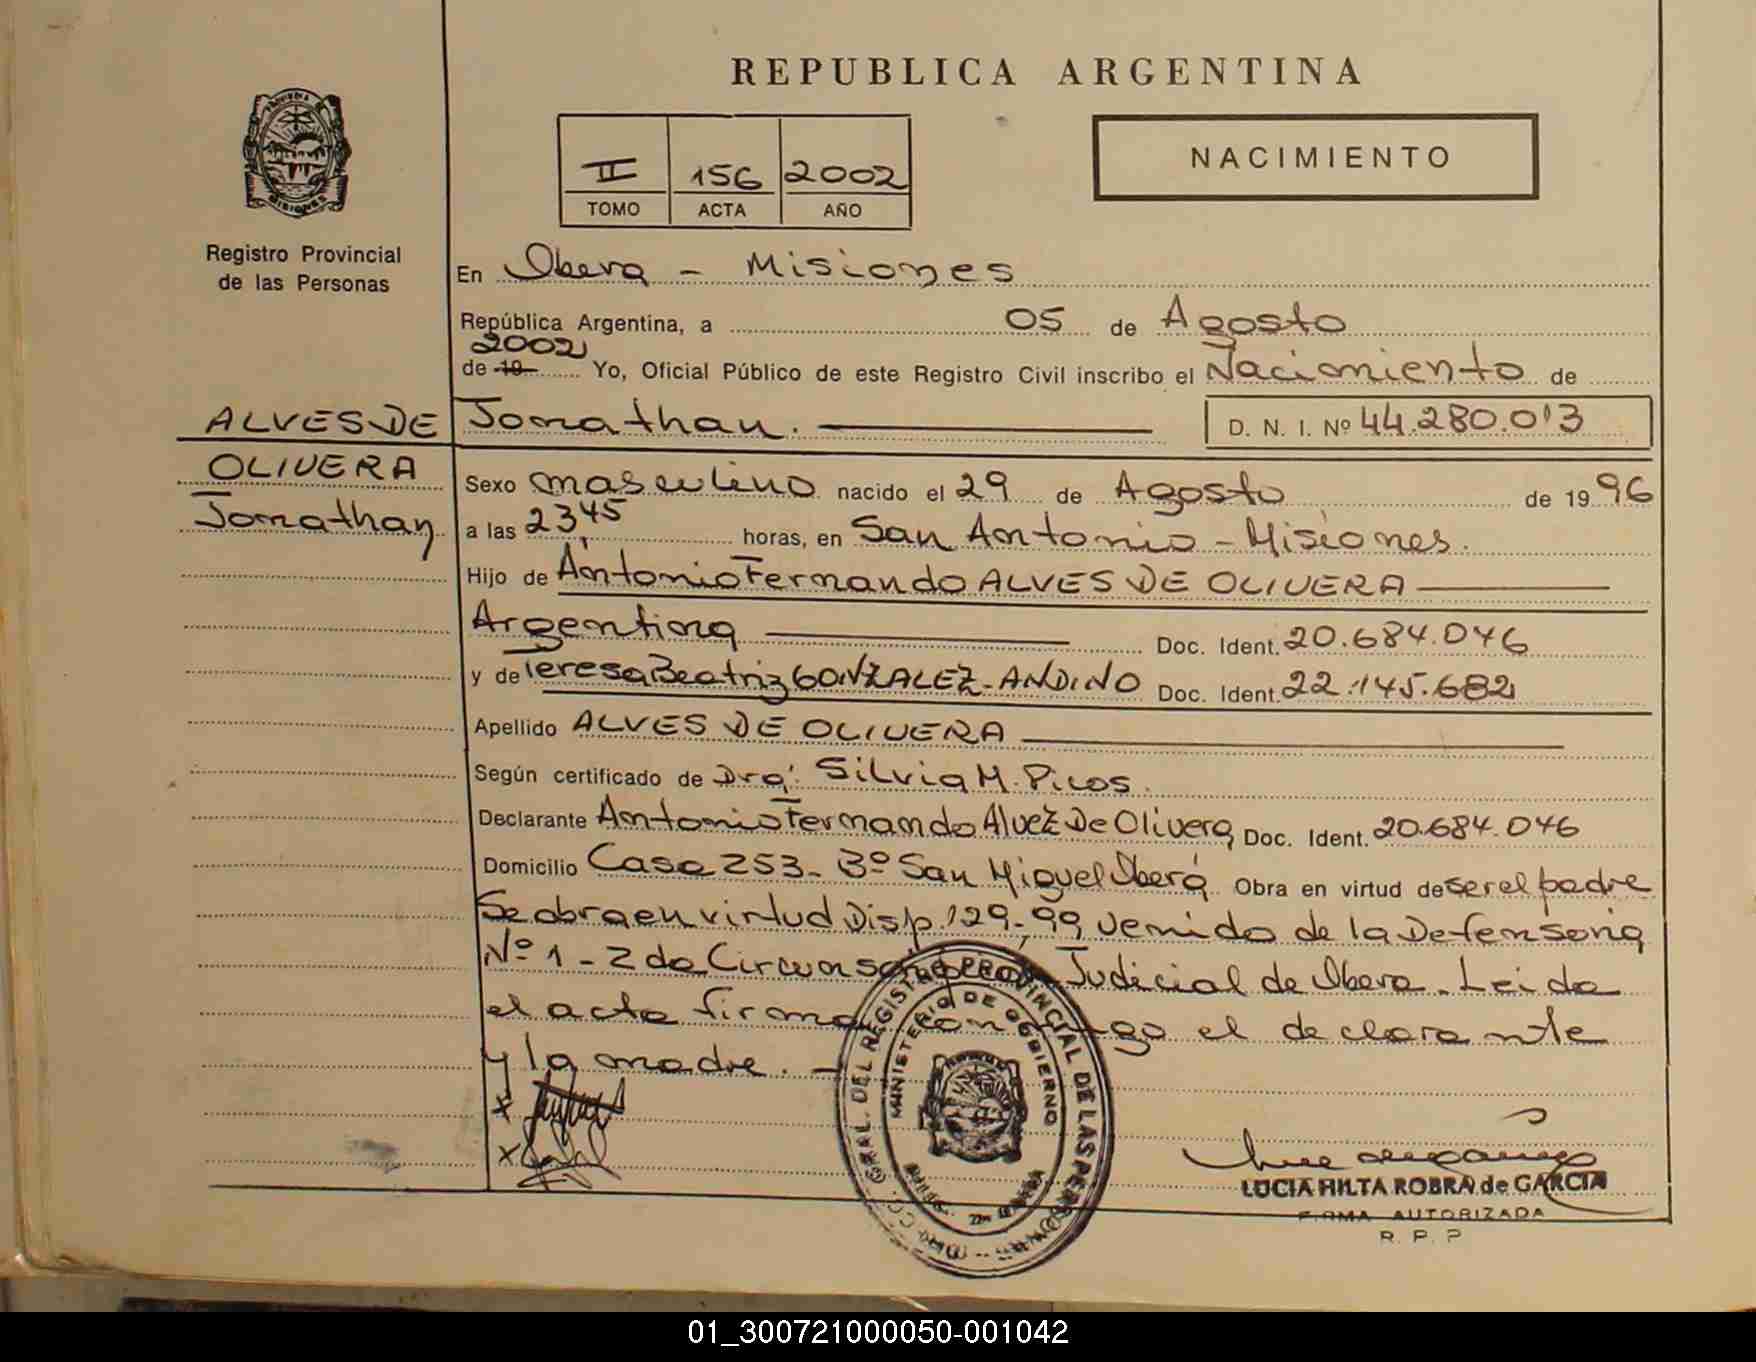 REPUBLICA ARGENTINA
II 156 2002
TOMO ACTA AÑO
NACIMIENTO
Registro Provincial
de las Personas
En Obera - Misiones
República Argentina, a 05 de Agosto
2002
de 19 Yo, Oficial Público de este Registro Civil inscribo el Nacimiento de
ALVES DE
OLIVERA
Jonathan
Jonathan. D. N. I. Nº 44.280.013
Sexo masculino nacido el 29 de Agosto de 19 96
a las 23,45 horas, en San Antonio - Misiones.
Hijo de Antonio Fernando ALVES DE OLIVERA
Argentina Doc. Ident. 20.684.046
y de Teresa Beatriz GONZALEZ - ANDINO Doc. Ident. 22.145.682
Apellido ALVES DE OLIVERA
Según certificado de Dra: Silvia M. Picos.
Declarante Antonio Fernando Alvez De Olivera Doc. Ident. 20.684.046
Domicilio Casa 253 - Bº San Miguel Oberá Obra en virtud de ser el padre
Se obra en virtud Disp. 129-99 venido de la Defensoria
Nº 1 - 2 da Circunscripcion Judicial de Obera - Leida
el acta firma conmigo el declarante
y la madre. -
x
x
GRAL. DEL REGISTRO PROVINCIAL DE LAS PERSONAS
MINISTERIO DE GOBIERNO
LUCIA HILTA ROBRA de GARCIA
FIRMA AUTORIZADA
R. P. P
01_300721000050-001042